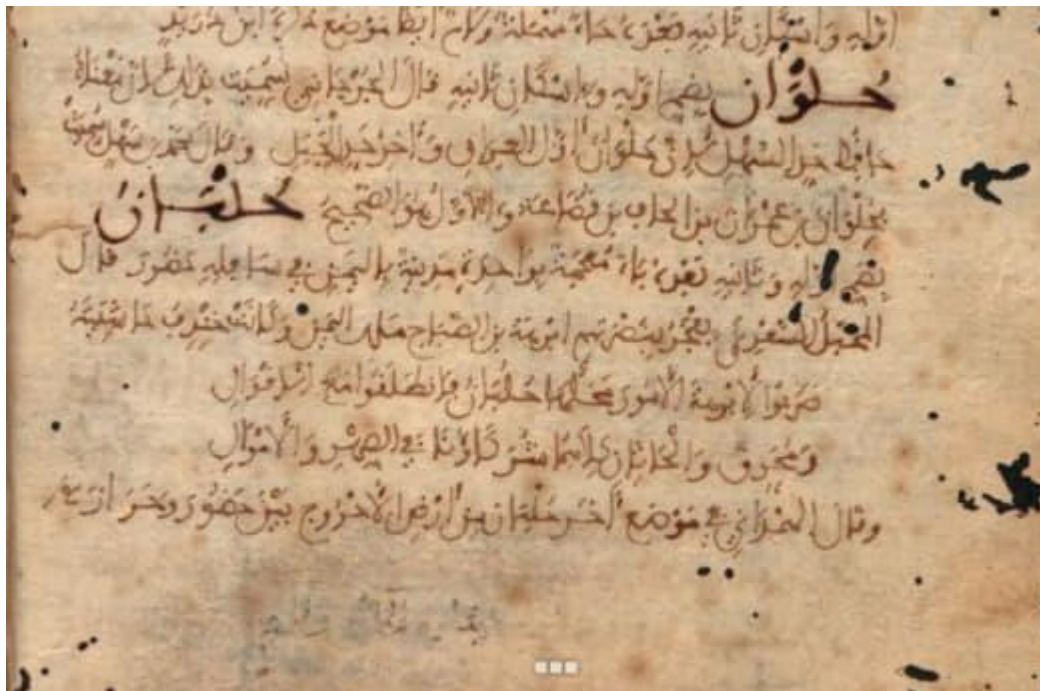 اوله واسكان ثانيه بعده حاء مهملة وكان ايضا موضع ذكره ابن دريد
حُلوَان بضم اوله واسكان ثانيه قال الجرجاني سميت بذلك لان معناه
حافظ حد السهل لان حلوان اول العراق وآخر حد الجبل وقال محمد بن سهل سميت
بحلوان بن عمران بن الحاف بن قضاعة والاول هو الصحيح حُلبَان
بضم اوله وثانيه بعده باء معجمة بواحدة مدينة باليمن في سافلة حضور قال
المخبل السعدي يفخر بنصرتهم ابرهة بن الصباح ملك اليمن وكانت خندف حاشيته
ضربوا لابرهة الامور محلها حلبان فانطلقوا مع الاقوال
ومحرق والحارثان كلاهما شركاؤنا في الصهر والاموال
وقال الهمداني في موضع آخر حلبان من ارض الاخروج بين حضور وحراز